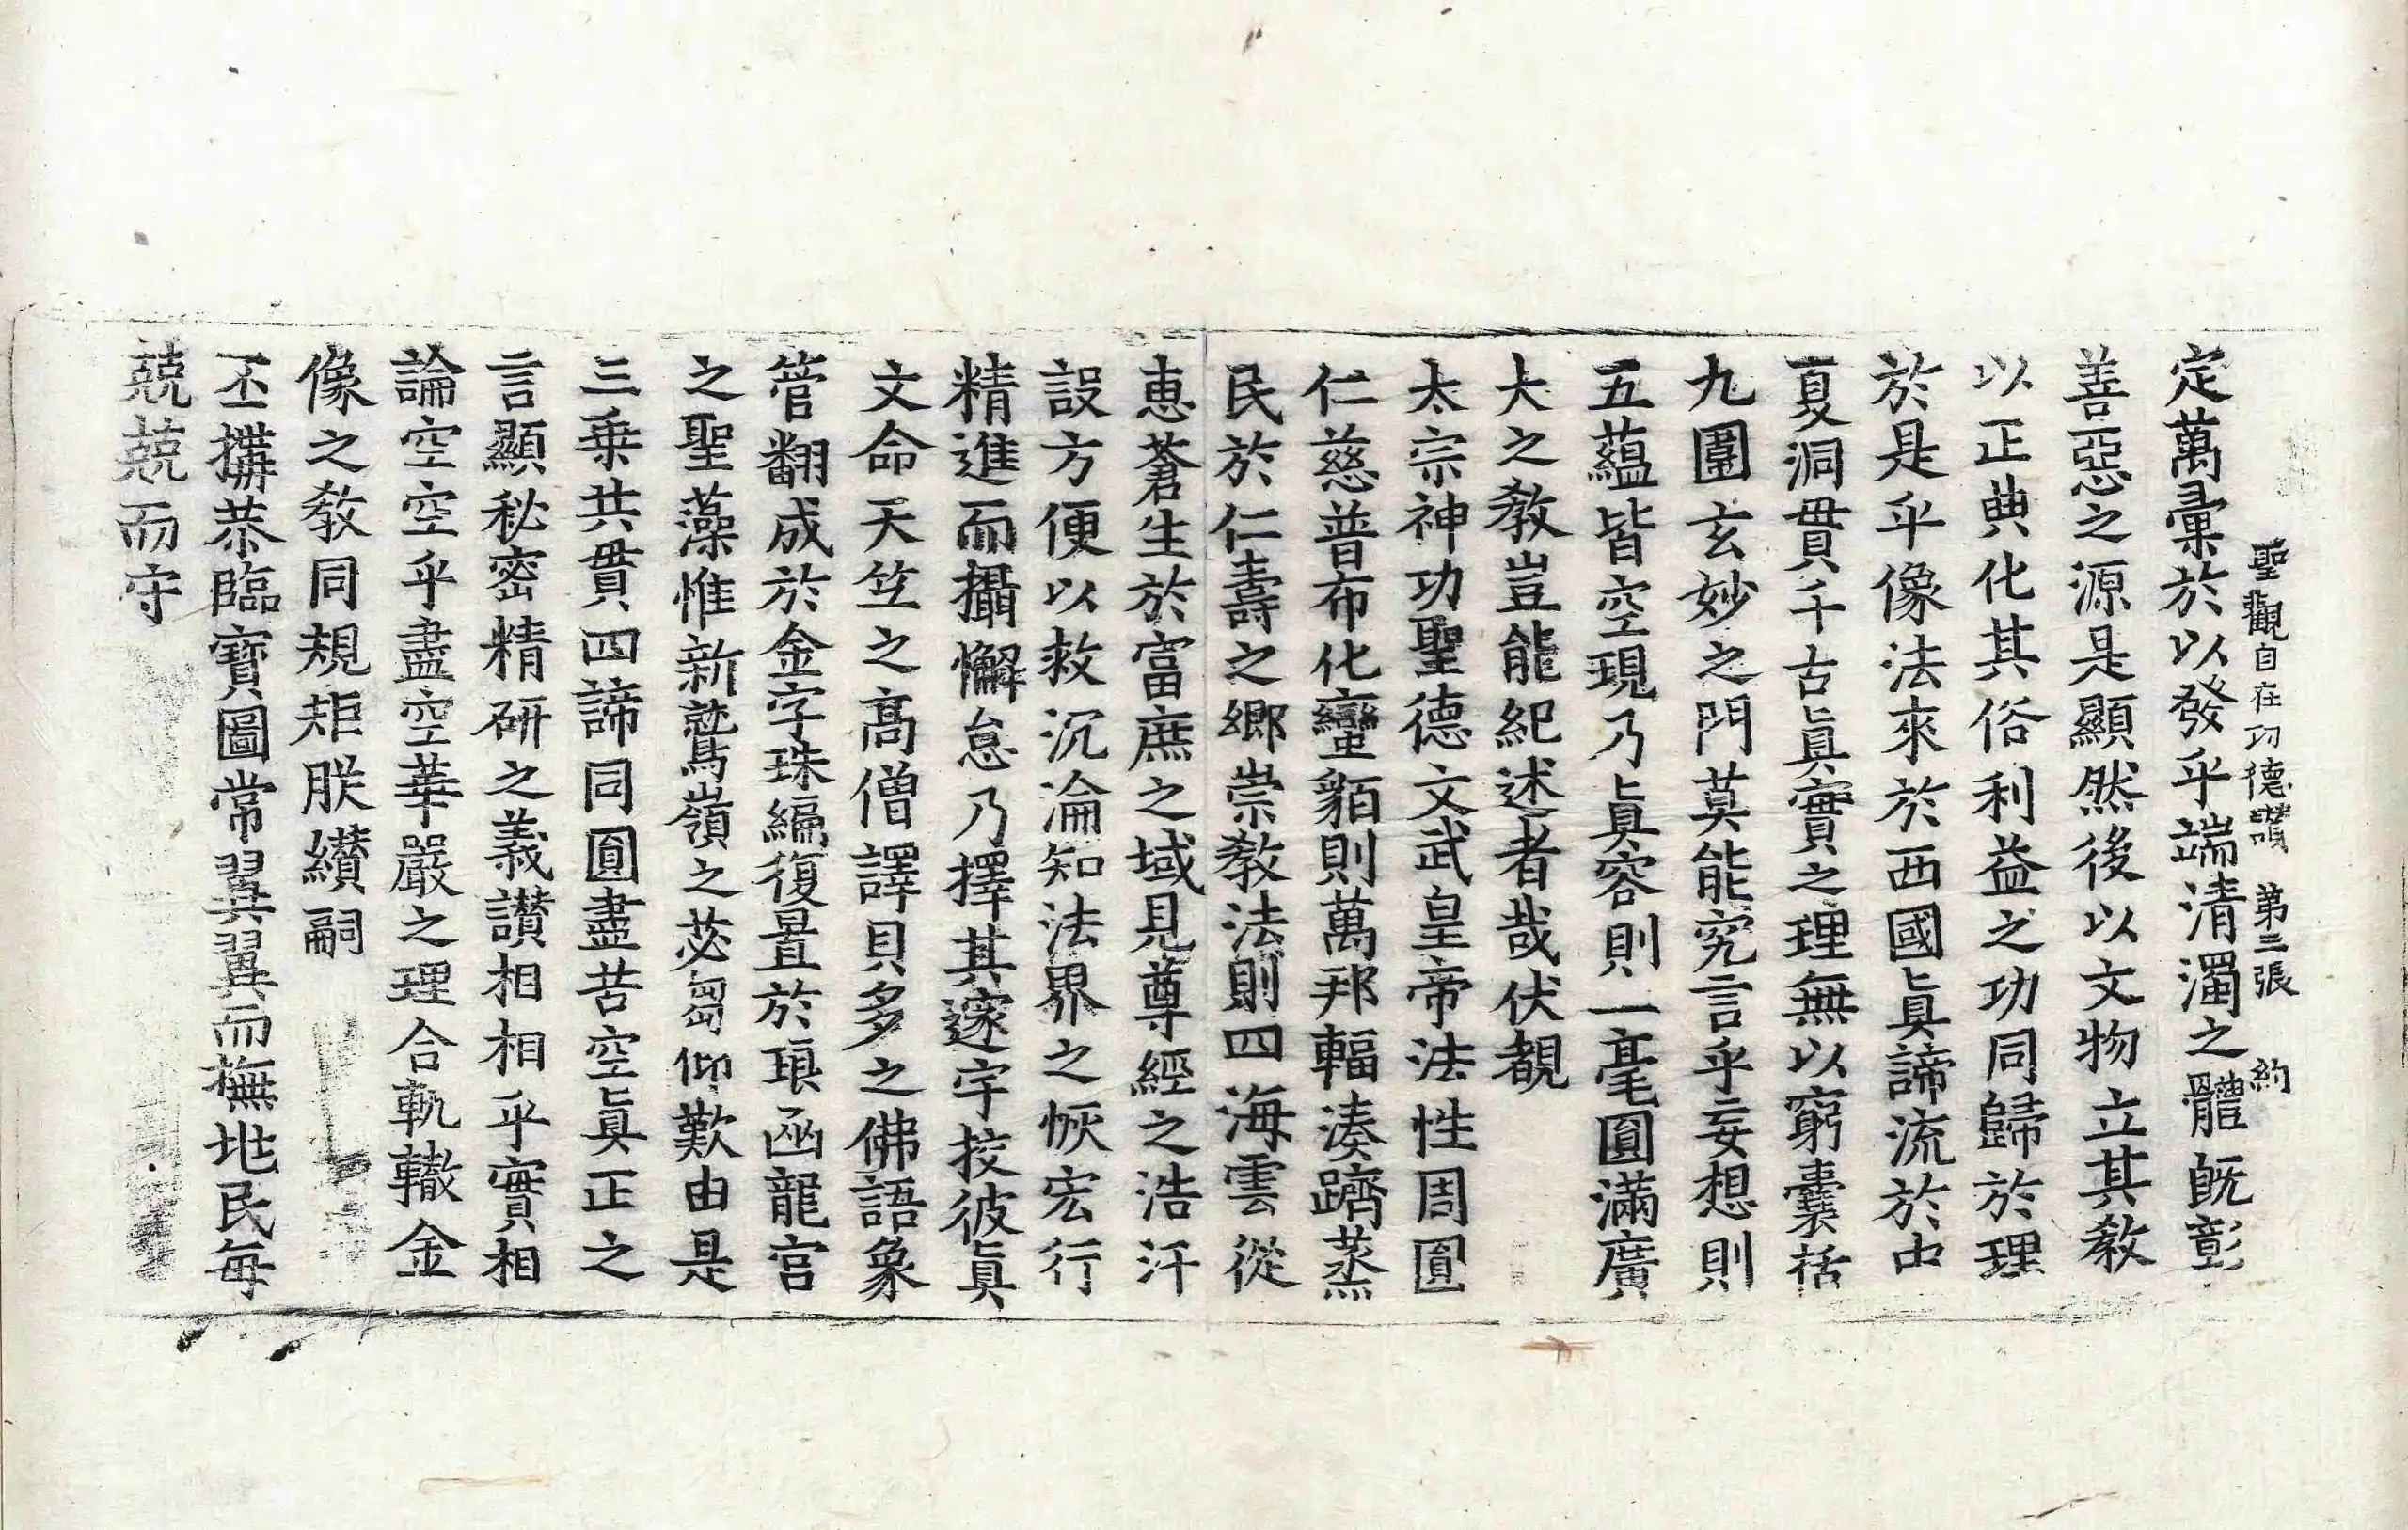 聖觀自在功德讚 第三張 約
定萬彙於以發乎端清濁之體旣彰
善惡之源是顯然後以文物立其敎
以正典化其俗利益之功同歸於理
於是乎像法來於西國眞諦流於中
夏洞貫千古眞實之理無以窮囊括
九圍玄妙之門莫能究言乎妄想則
五蘊皆空現乃眞容則一毫圓滿廣
大之敎豈能紀述者哉伏覩
太宗神功聖德文武皇帝法性周圓
仁慈普布化蠻貊則萬邦輻湊躋蒸
民於仁壽之鄉崇敎法則四海雲從
惠蒼生於富庶之域見尊經之浩汗
設方便以救沉淪知法界之恢宏行
精進而攝懈怠乃擇其邃宇挍彼眞
文命天竺之高僧譯貝多之佛語象
管翻成於金字珠編復置於琅函龍宮
之聖藻惟新鷲嶺之苾芻仰歎由是
三乘共貫四諦同圓盡苦空眞正之
言顯秘密精研之義讚相相乎實相
論空空乎盡空華嚴之理合軌轍金
像之敎同規矩朕纘嗣
丕搆恭臨寶圖常翼翼而撫地民每
兢兢而守